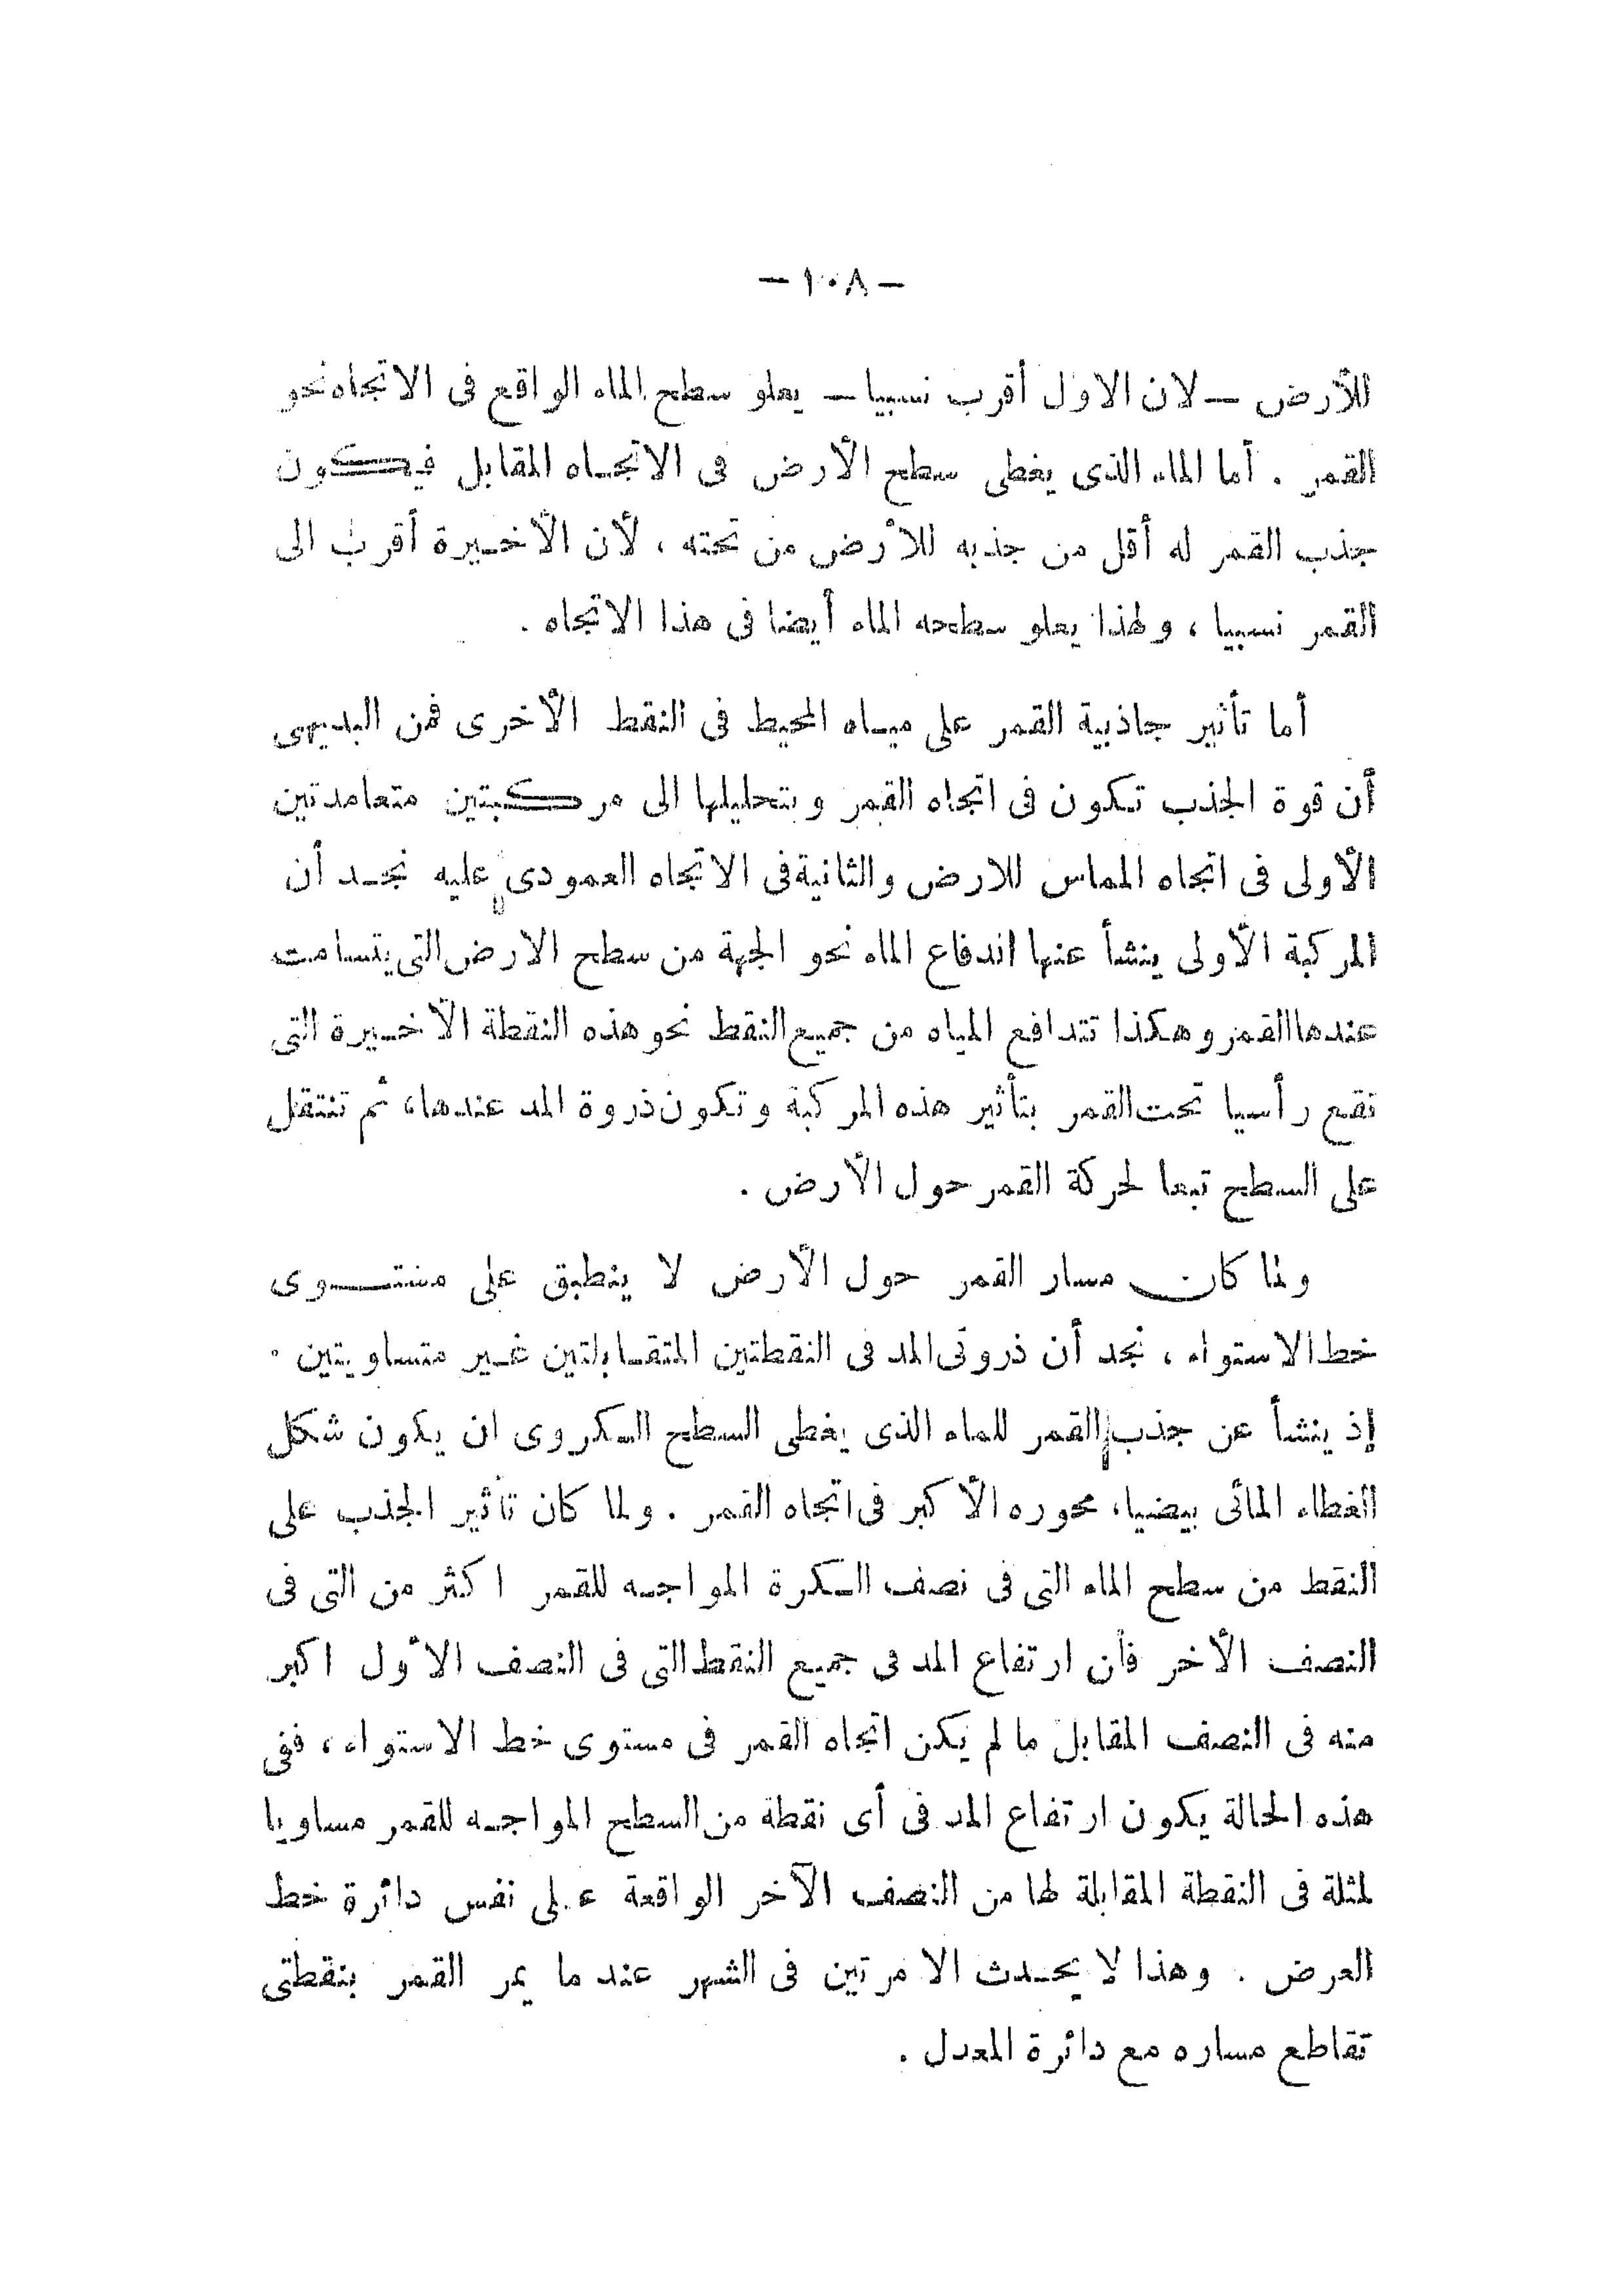 — ١٠٨ —
للأرض — لان الاول أقرب نسبيا — يعلو سطح الماء الواقع فى الاتجاه نحو
القمر . أما الماء الذى يغطى سطح الأرض فى الاتجاه المقابل فيكون
جذب القمر له أقل من جذبه للأرض من تحته ، لأن الأخيرة أقرب الى
القمر نسبيا ، ولهذا يعلو سطحه الماء أيضا فى هذا الاتجاه .
أما تأثير جاذبية القمر على مياه المحيط فى النقط الأخرى فمن البديهى
أن قوة الجذب تكون فى اتجاه القمر وبتحليلها الى مركبتين متعامدتين
الأولى فى اتجاه المماس للارض والثانية فى الاتجاه العمودى عليه نجد أن
المركبة الأولى ينشأ عنها اندفاع الماء نحو الجهة من سطح الارض التى يتسامت
عندها القمر وهكذا تتدافع المياه من جميع النقط نحو هذه النقطة الأخيرة التى
تقع رأسيا تحت القمر بتأثير هذه المركبة وتكون ذروة المد عندها، ثم تنتقل
على السطح تبعا لحركة القمر حول الأرض .
ولما كان مسار القمر حول الأرض لا ينطبق على مستوى
خط الاستواء ، نجد أن ذروتى المد فى النقطتين المتقابلتين غير متساويتين .
إذ ينشأ عن جذب القمر للماء الذى يغطى السطح الكروى ان يكون شكل
الغطاء المائى بيضيا، محوره الأكبر فى اتجاه القمر . ولما كان تأثير الجذب على
النقط من سطح الماء التى فى نصف الكرة المواجه للقمر اكثر من التى فى
النصف الأخر فأن ارتفاع المد فى جميع النقط التى فى النصف الأول اكبر
منه فى النصف المقابل ما لم يكن اتجاه القمر فى مستوى خط الاستواء ، ففى
هذه الحالة يكون ارتفاع المد فى أى نقطة من السطح المواجه للقمر مساويا
لمثلة فى النقطة المقابلة لها من النصف الآخر الواقعة على نفس دائرة خط
العرض . وهذا لا يحدث الا مرتين فى الشهر عند ما يمر القمر بنقطتى
تقاطع مساره مع دائرة المعدل .